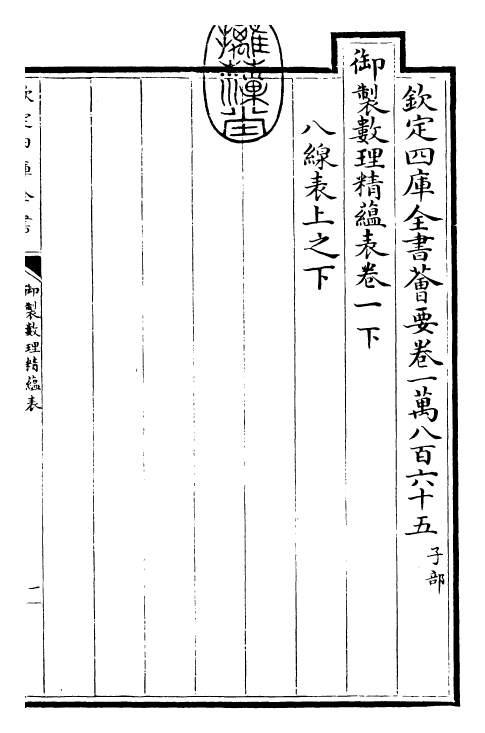 欽定四庫全書薈要卷一萬八百六十五 子部
御製數理精蘊表卷一下
八線表上之下
欽定四庫全書
御製數理精蘊表
一